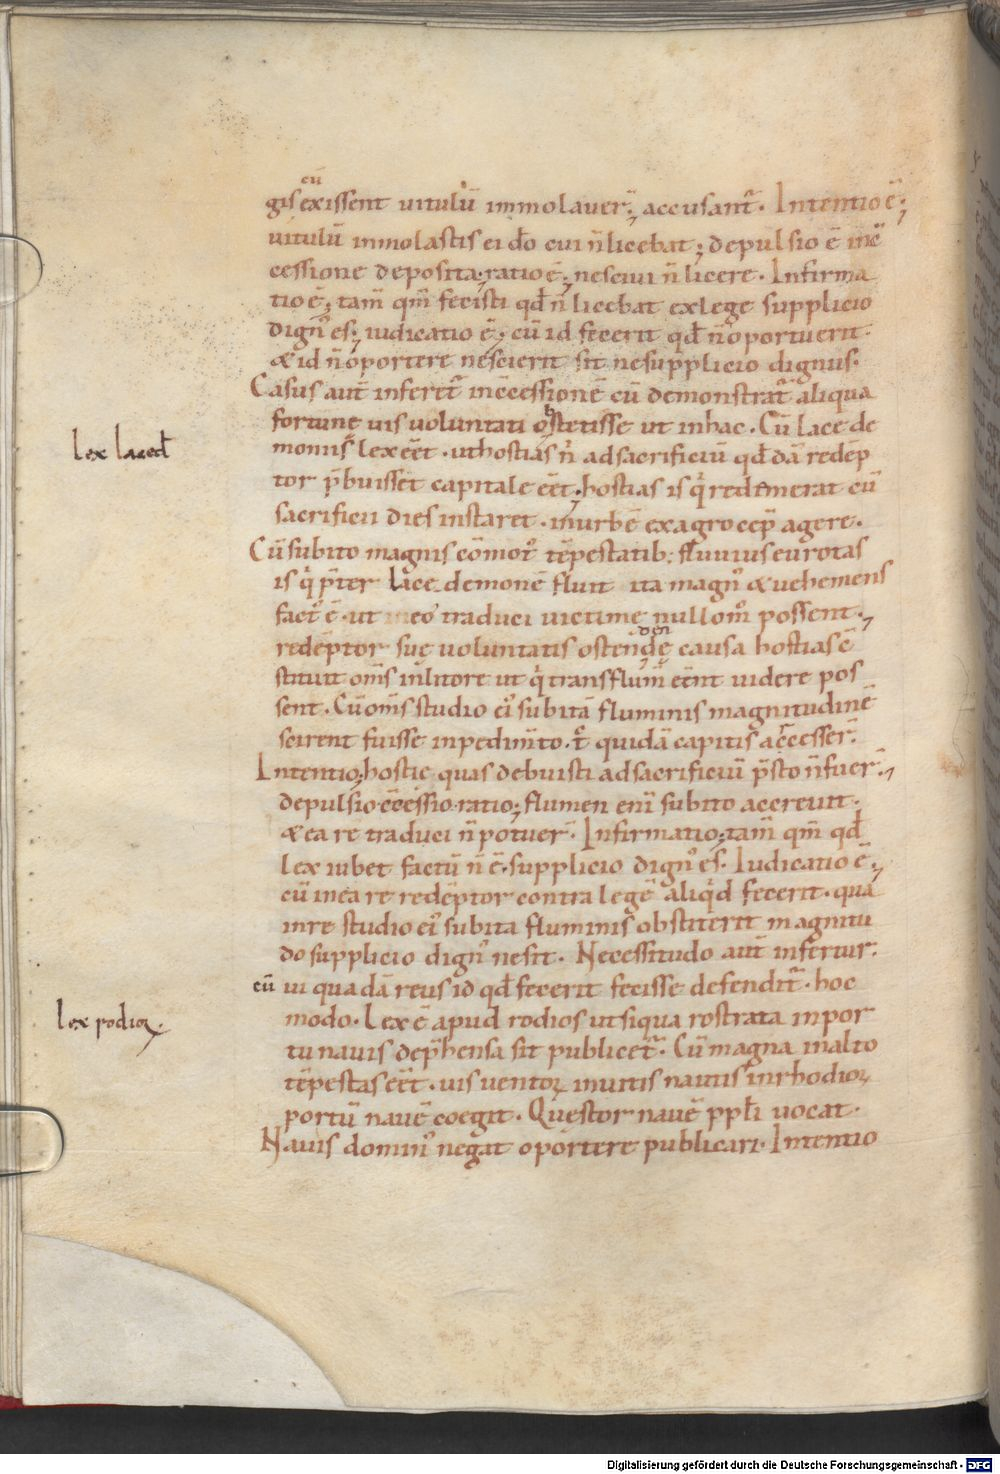 cū
gis exissent uitulū immolauer̄; accusant᷑. Intentio ē;
uitulū immolastis ei dō cui n̄ licebat; depulsio ē in c̄
cessione deposita; ratio ē; nesciui n̄ licere. Infirma
tio ē; tam̄ qm̄ fecisti qd̄ n̄ licebat ex lege supplicio
dign᷒ es; iudicatio ē; cū id fecerit qd̄ n̄ oportuerit.
& id n̄ oportere nescierit sit ne supplicio dignus.
Casus aut̄ infert᷑ in c̄cessionē cū demonstrat᷑ aliqua
fortunę uis uoluntati obstetisse ut in hac. Cū lace de
lex laced̄
moniis lex eēt. ut hostias n̄ ad sacrificiū qd̄dā redēp
tor p̄buisset capitale eēt; hostias is q̇ redemerat cū
sacrificii dies instaret. in urbē ex agro cep̄ agere.
Cū subito magnis cōmot᷒ tēpestatib; fluuius eurotas
is q̇ p̄ter lace demonē fluit ita magn᷒ & uehemens
fact᷒ ē. ut eo traduci uictime nullo m̊ possent;
redēptor suę uoluntatis ostendendę causa hostias c̄
stituit om̄s in litore ut q̇ trans flum̄ eēnt uidere pos
sent. Cū om̄s studio ei᷒ subitā fluminis magnitudinē
scirent fuisse inpedim̄to. t᷒ quidā capitis accesser̄.
Intentio; hostię quas debuisti ad sacrificiū p̄sto n̄ fuer̄;
depulsio c̄cessio. ratio; flumen enī subito accreuit.
& ea re traduci n̄ potuer̄. Infirmatio; tam̄ qm̄ qd̄
lex iubet factū n̄ ē. supplicio dign᷒ es. Iudicatio ē;
cū in ea re redēptor contra legē aliq̇d fecerit. qua
in re studio ei᷒ subita fluminis obstiterit magnitu
do supplicio dign᷒ ne sit. Necessitudo aut̄ infertur.
cū ui quadā reus id qd̄ fecerit fecisse defendit᷑. hoc
lex rodioꝝ.
modo. Lex ē apud rodios ut siqua rostrata in por
tu nauis dep̄hensa sit publicet᷑. Cū magna in alto
tēpestas eēt. uis uentoꝝ inuitis nautis in rhodioꝝ
portū nauē coegit. Quęstor nauē ppl̄i uocat.
Nauis domin᷒ negat oportere publicari. Intentio
Digitalisierung gefördert durch die Deutsche Forschungsgemeinschaft - DFG